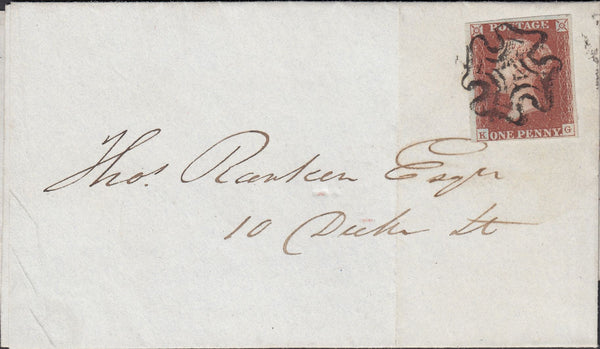 POSTAGE
K G
ONE PENNY
Thos. Ranken Esqr
10 Duke St